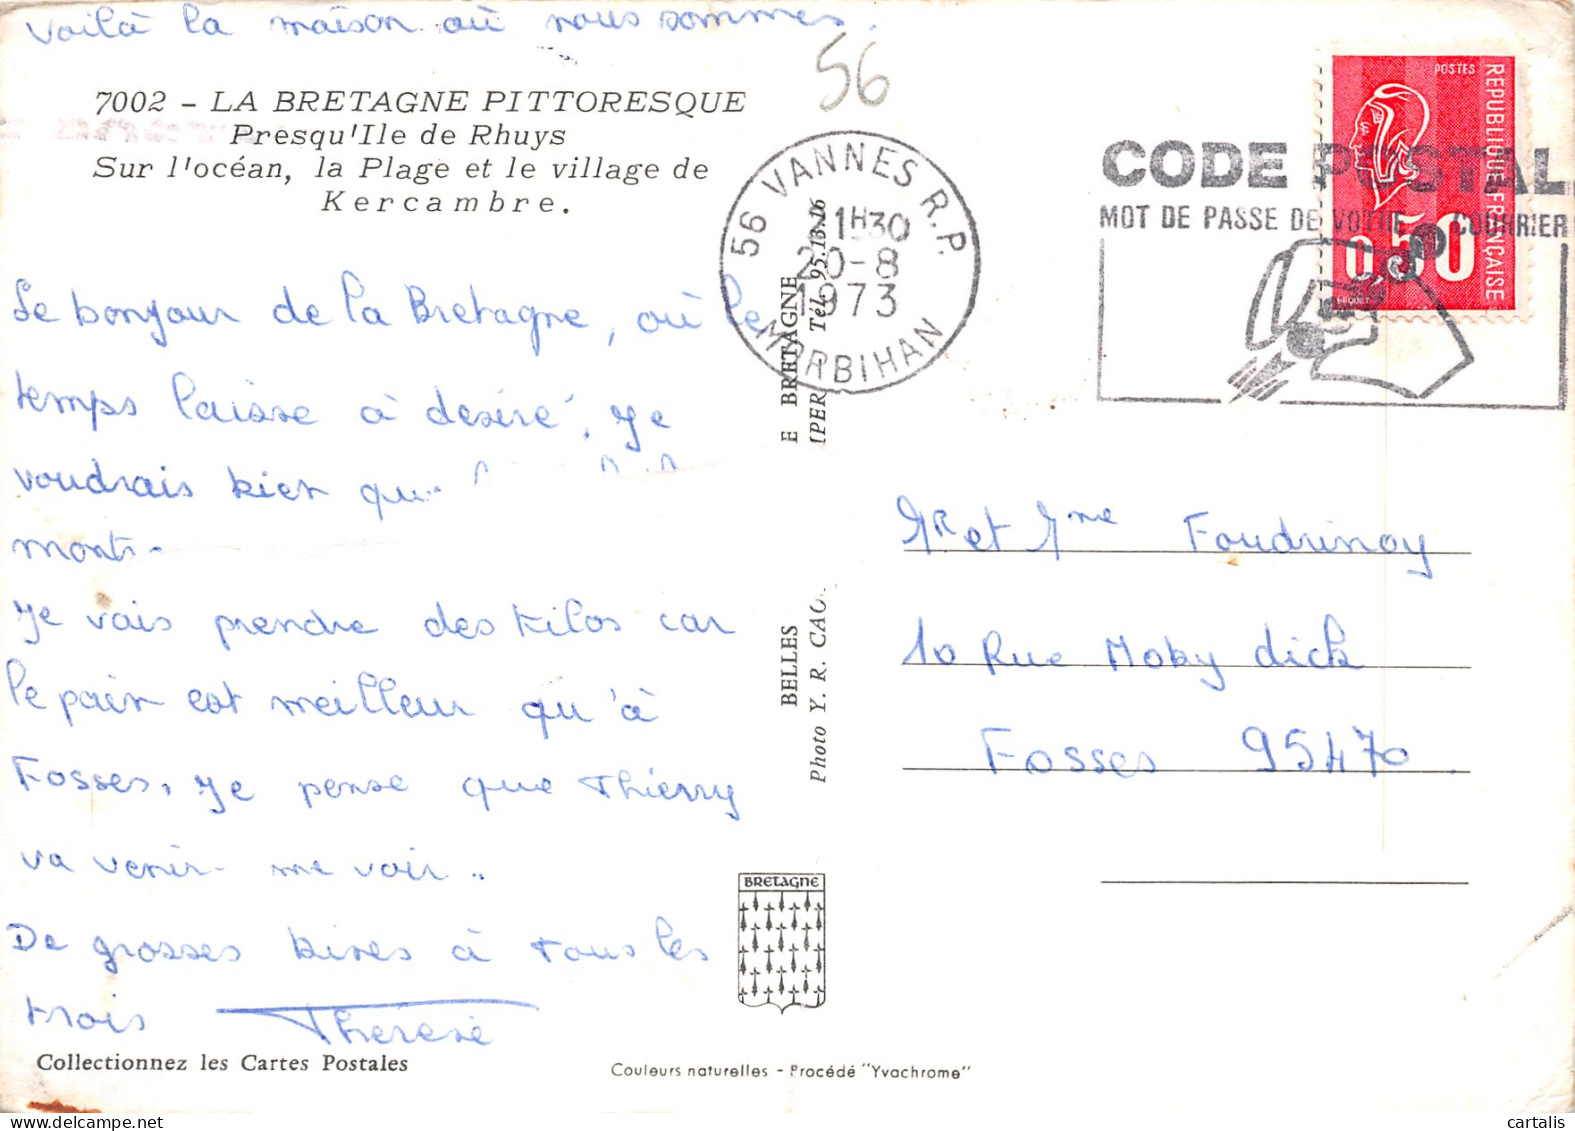 Voilà la maison où nous sommes.
56
7002 - LA BRETAGNE PITTORESQUE
Presqu'Ile de Rhuys
Sur l'océan, la Plage et le village de
Kercambre.
Le bonjour de la Bretagne, où le
temps laisse à désiré, Je
voudrais bien que
Je vais prendre des kilos car
le pain est meilleur qu'à
Fosses, Je pense que Thierry
va venir me voir..
De grosses bises à tous les
trois Thérèse
Collectionnez les Cartes Postales
56 VANNES R.P.
1H30
20-8
1973
MORBIHAN
E BRETAGNE
Tél. 95.13.26
BELLES
Photo Y. R. CAO
BRETAGNE
Couleurs naturelles - Procédé "Yvachrome"
CODE POSTAL
MOT DE PASSE DE VOTRE COURRIER
POSTES
REPUBLIQUE FRANÇAISE
0,50
Mr et Mme Foudrinoy
10 Rue Moby dick
Fosses 95470
cartalis